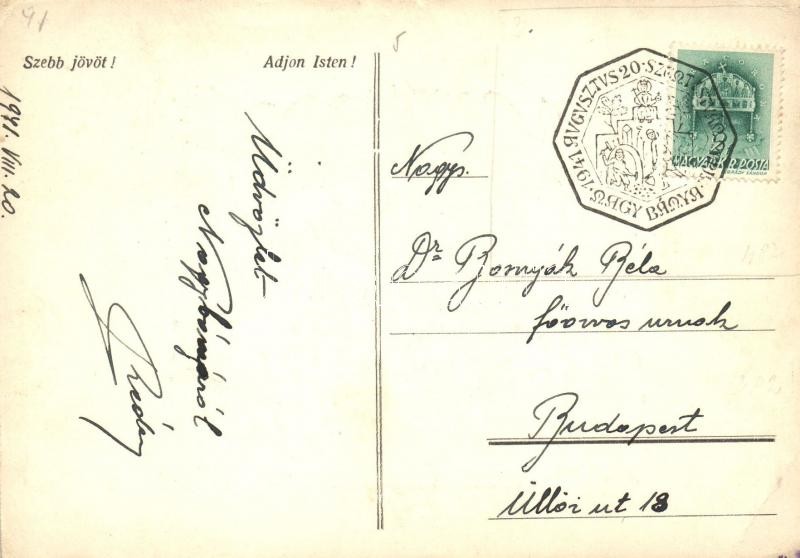 41
Szebb jövöt!
Adjon Isten!
5
1941. VIII. 20.
Üdvözlet
Nagybányáról
1941 AUGUSZTUS 20 · SZENT
NAGYBÁNYA
MAGYAR KIR. POSTA
Nagys.
Dr Bornyák Béla
főorvos urnak
Budapest
Üllői ut 18